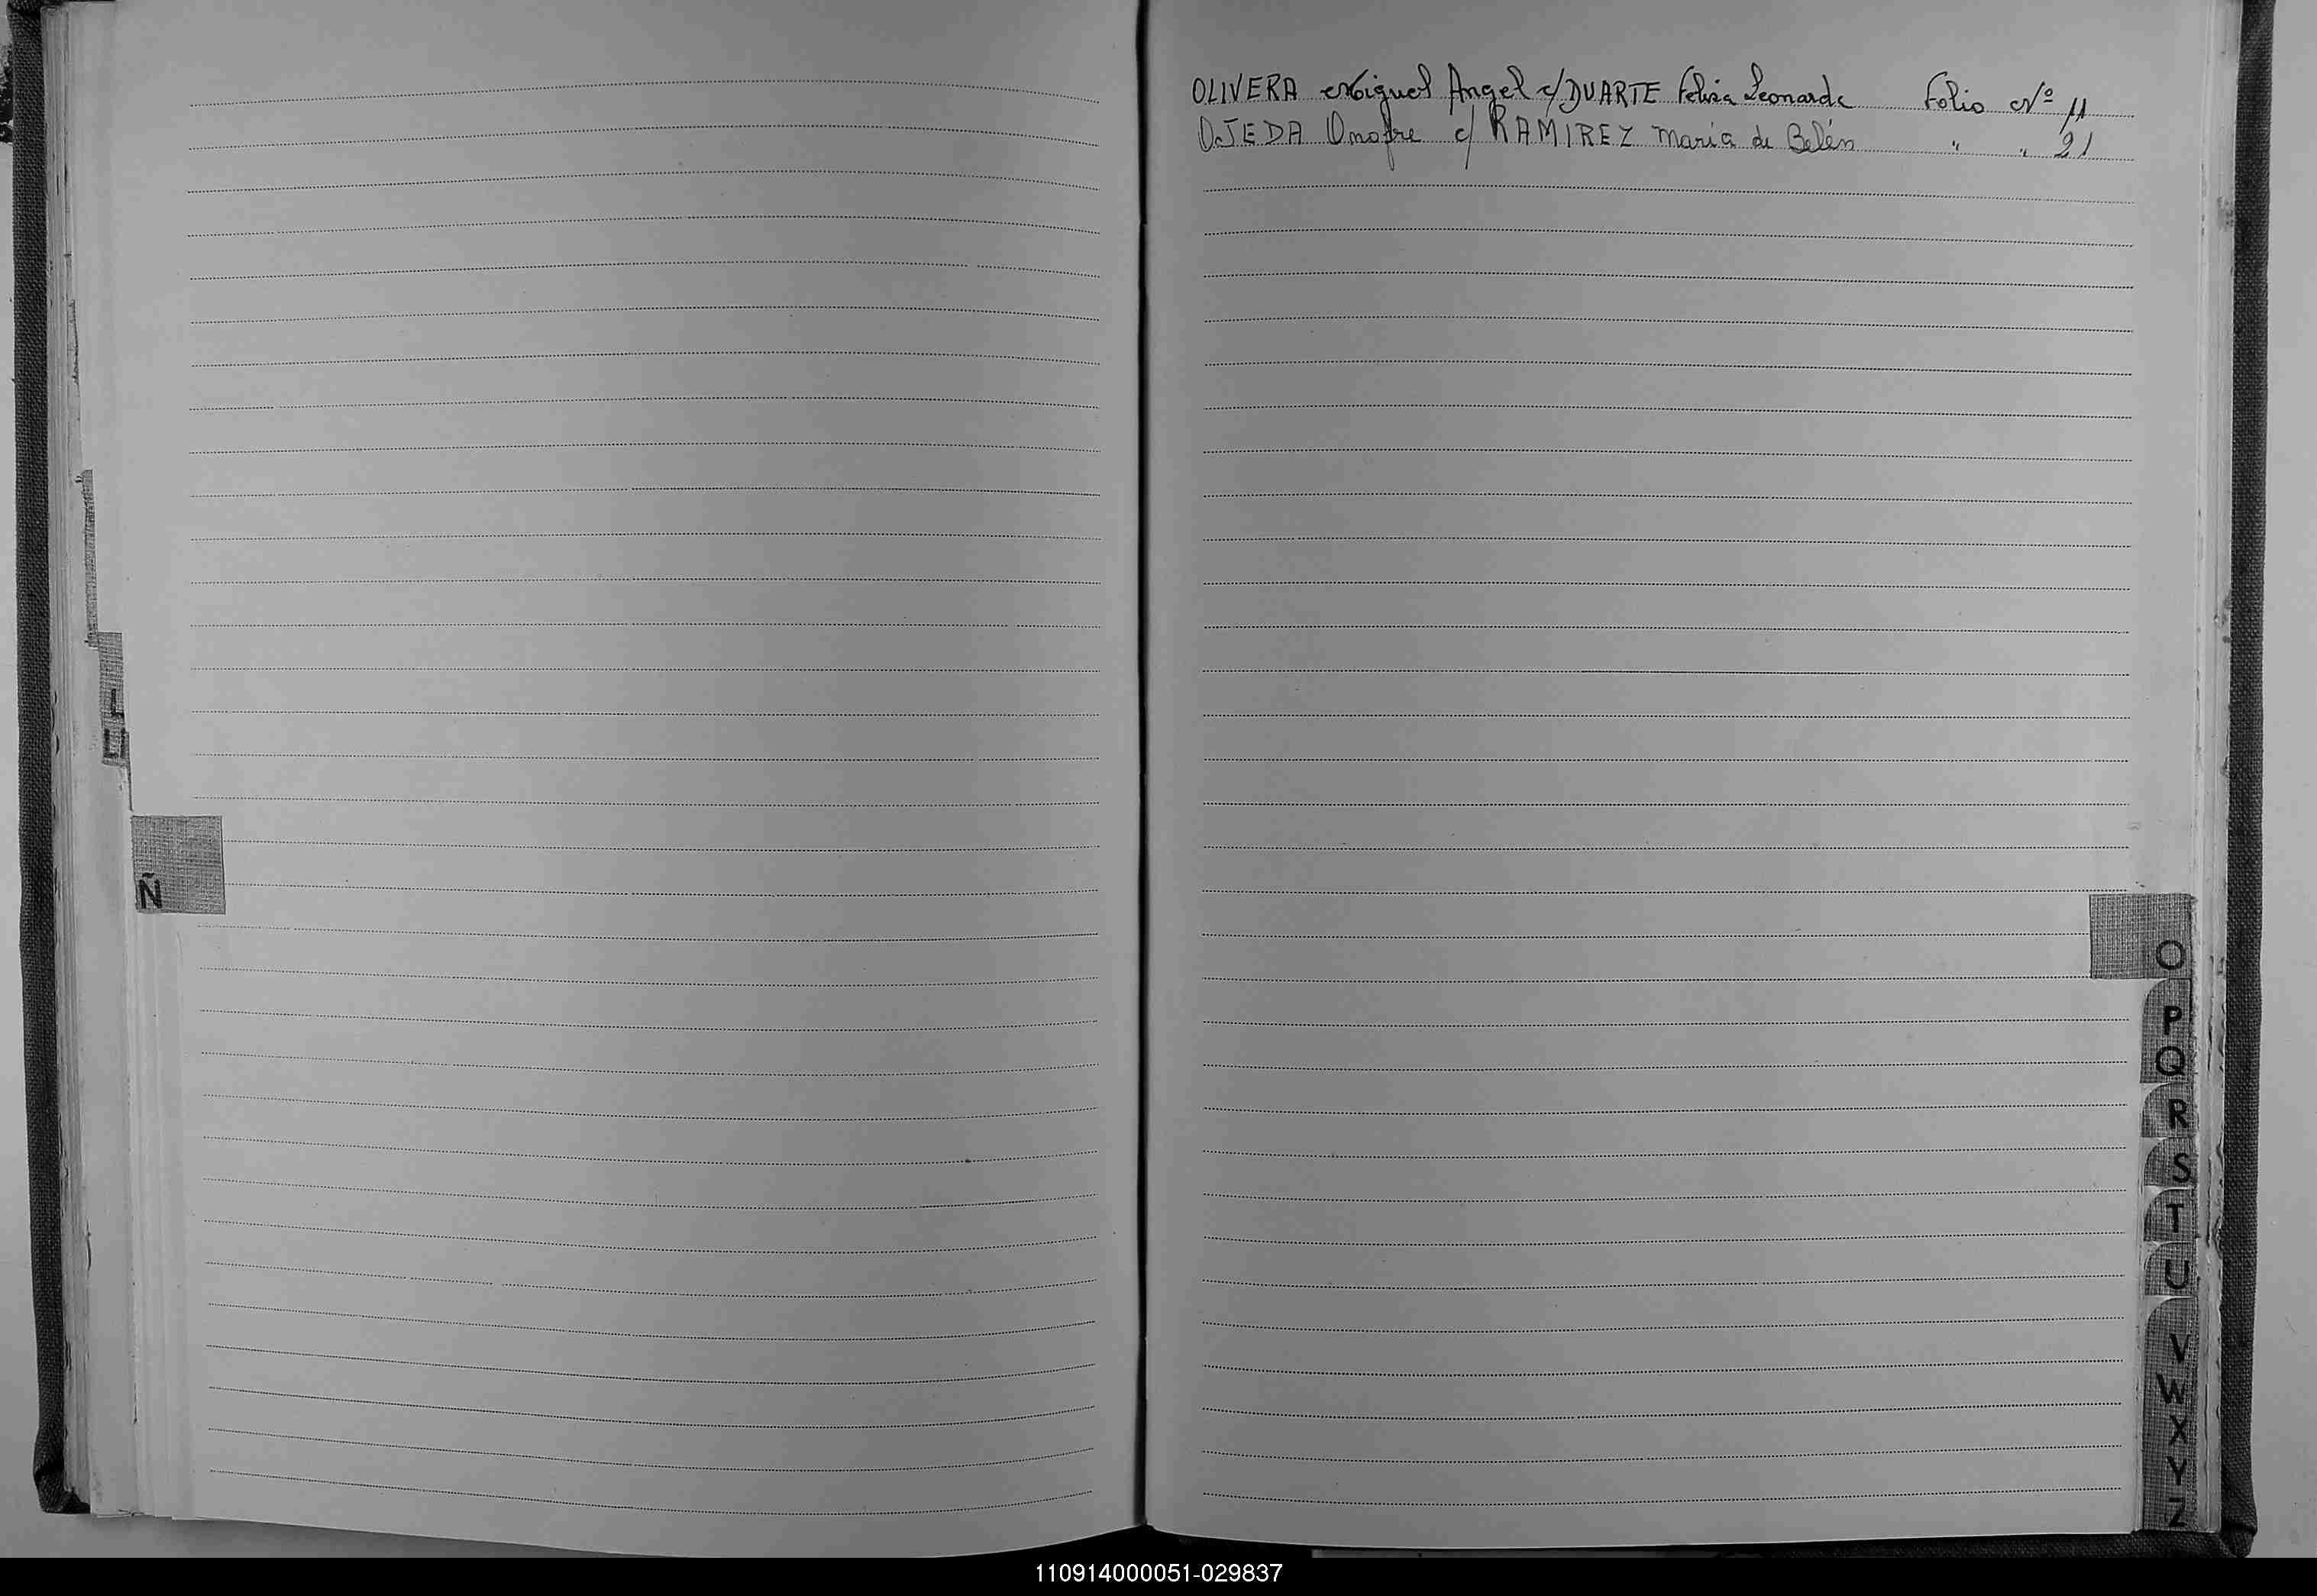 OLIVERA Miguel Angel c/ DUARTE Felisa Leonarda Folio Nº 11
OJEDA Onofre c/ RAMIREZ María de Belén " " 21
L
LL
Ñ
O
P
Q
R
S
T
U
V
W
X
Y
Z
110914000051-029837